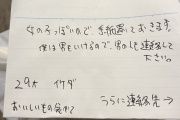 女の子っぽいので、手紙置いておきます。
僕は男もいけるので、男の人も連絡して
下さい。
29才 イケダ
おいしいもの食べ?
うらに連絡先→